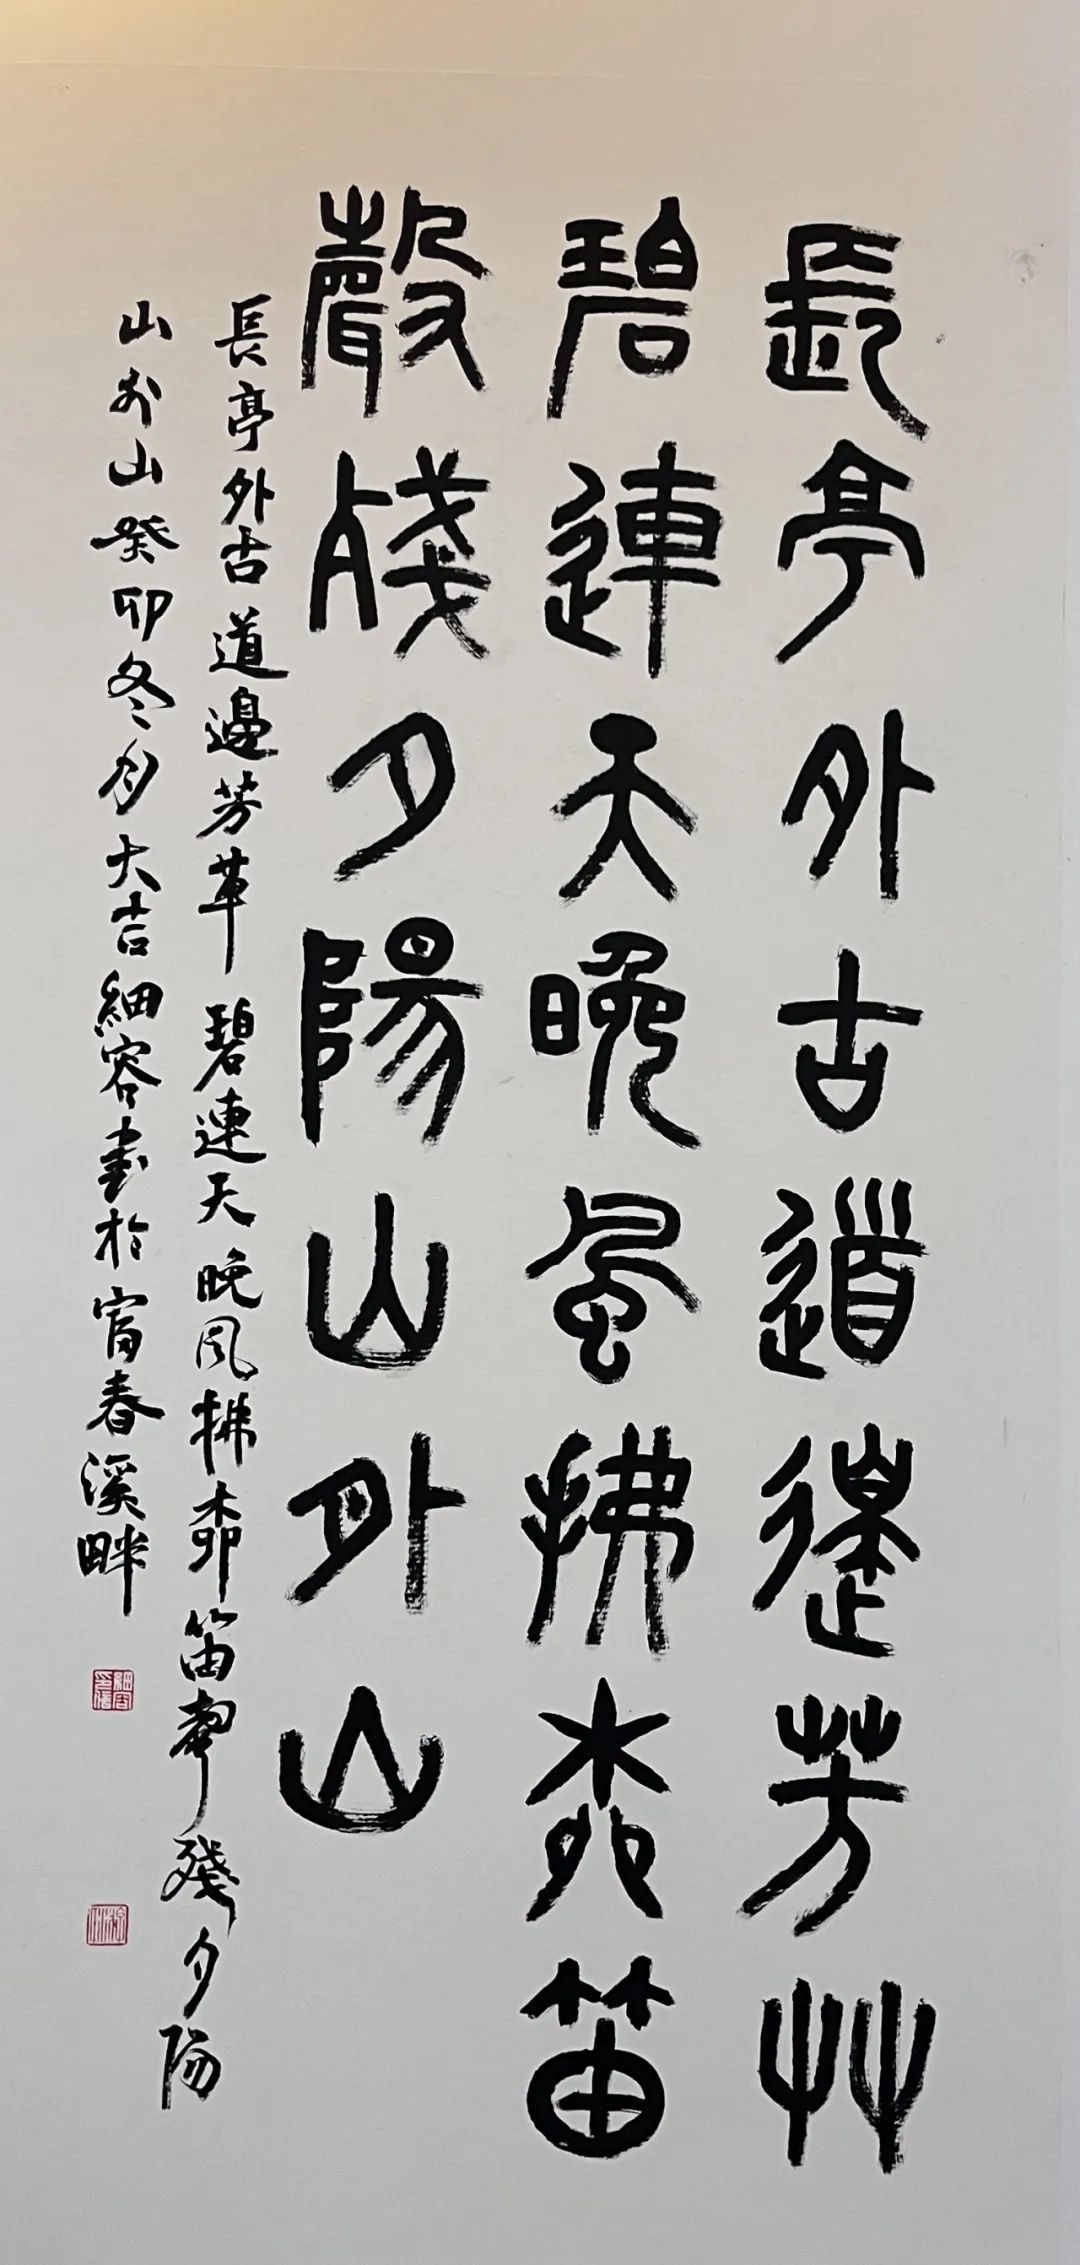 長亭外古道邊芳艸
碧連天晚風拂桺笛
聲殘夕陽山外山
長亭外古道邊芳草碧連天晚風拂桺笛聲殘夕陽
山外山癸卯冬月大吉細容書於富春溪畔